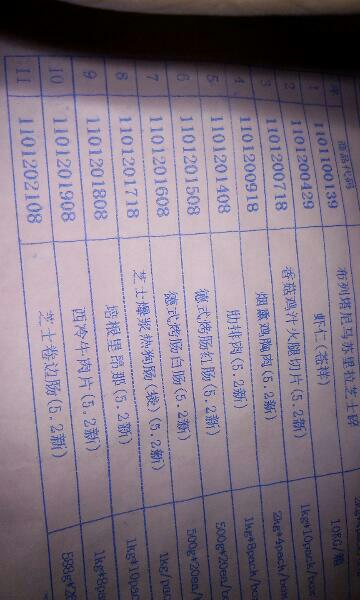 序 商品代码
1 1101100139 布列塔尼马苏里拉芝士碎 108G/箱
2 1101200429 虾仁(圣祥) 1kg*10pack/box
3 1101200718 香菇鸡汁火腿切片(5.2新) 2kg*4pack/box
4 1101200918 烟熏鸡胸肉(5.2新) 1kg*8pack/box
5 1101201408 肋排肉(5.2新) 500g*20ea/bo
6 1101201508 德式烤肠红肠(5.2新) 500g*20ea/
7 1101201608 德式烤肠白肠(5.2新) 1kg/pa
8 1101201718 芝士爆浆热狗肠(袋)(5.2新) 1kg*10pa
9 1101201808 培根里昂那(5.2新) 1kg*8pa
10 1101201908 西冷牛肉片(5.2新)
11 1101202108 芝士卷边肠(5.2新)